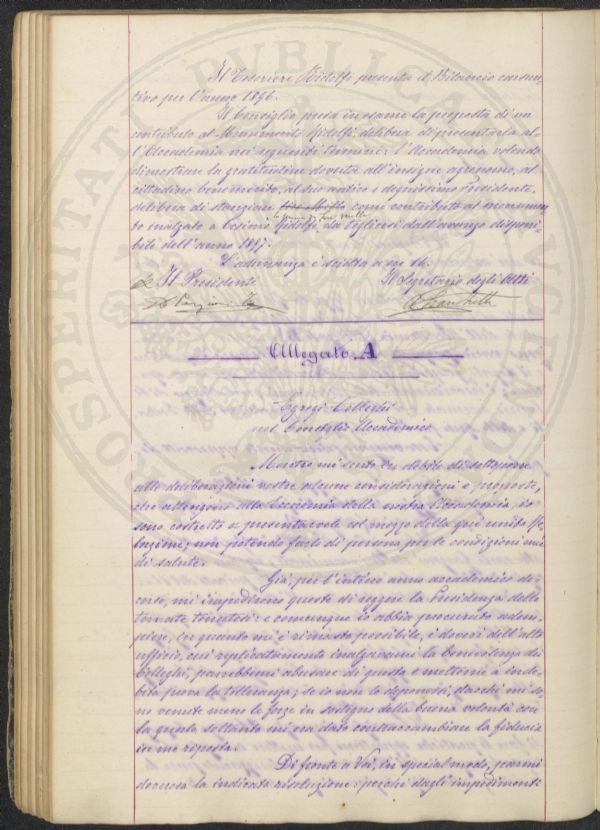 Il Tesoriere Ridolfi presenta il Bilancio consun-
tivo per l'anno 1896.
Il Consiglio presa in esame la proposta di un
contributo al Monumento Ridolfi, delibera di presentarla al-
l'Accademia nei seguenti termini: L'Accademia volendo
dimostrare la gratitudine dovuta all'insigne agronomo, al
cittadino benemerito, al suo antico e degnissimo presidente,
delibera di stanziare come contributo al monumen-
to inalzato a Cosimo Ridolfi, da togliersi dall'avanzo disponi-
bile dell'anno 1897.
L'adunanza è sciolta a ore 16.
Il Presidente Il Segretario degli Atti
Allegato A
Egregi Colleghi
nel Consiglio Accademico
Mentre mi sento in debito di sottoporre
alle deliberazioni vostre alcune considerazioni e proposte,
che attengono alla Economia della nostra Accademia, io
sono costretto a presentarvele col mezzo della qui unita Re-
lazione; non potendo farlo di persona per le condizioni mie
di salute.
Già, per l'intiero anno accademico de-
corso, mi impedirono queste di reggere la Presidenza delle
tornate tenutesi: e comunque io abbia procurato adem-
piere, in quanto mi è rimasto possibile, i doveri dell'alto
ufficio, cui replicatamente inalzavami la benevolenza dei
Colleghi, parrebbemi abusare di questa e mettere a inde-
bita prova la tolleranza; se io non lo deponessi, dacchè mi so-
no venute meno le forze in sostegno della buona volontà con
la quale soltanto mi era dato contraccambiare la fiducia
in me riposta.
Di fronte a Voi, in special modo, parmi
doverosa la indicata risoluzione: poichè dagli impedimenti
PROSPERITATI PVBLICAE AVGENDAE